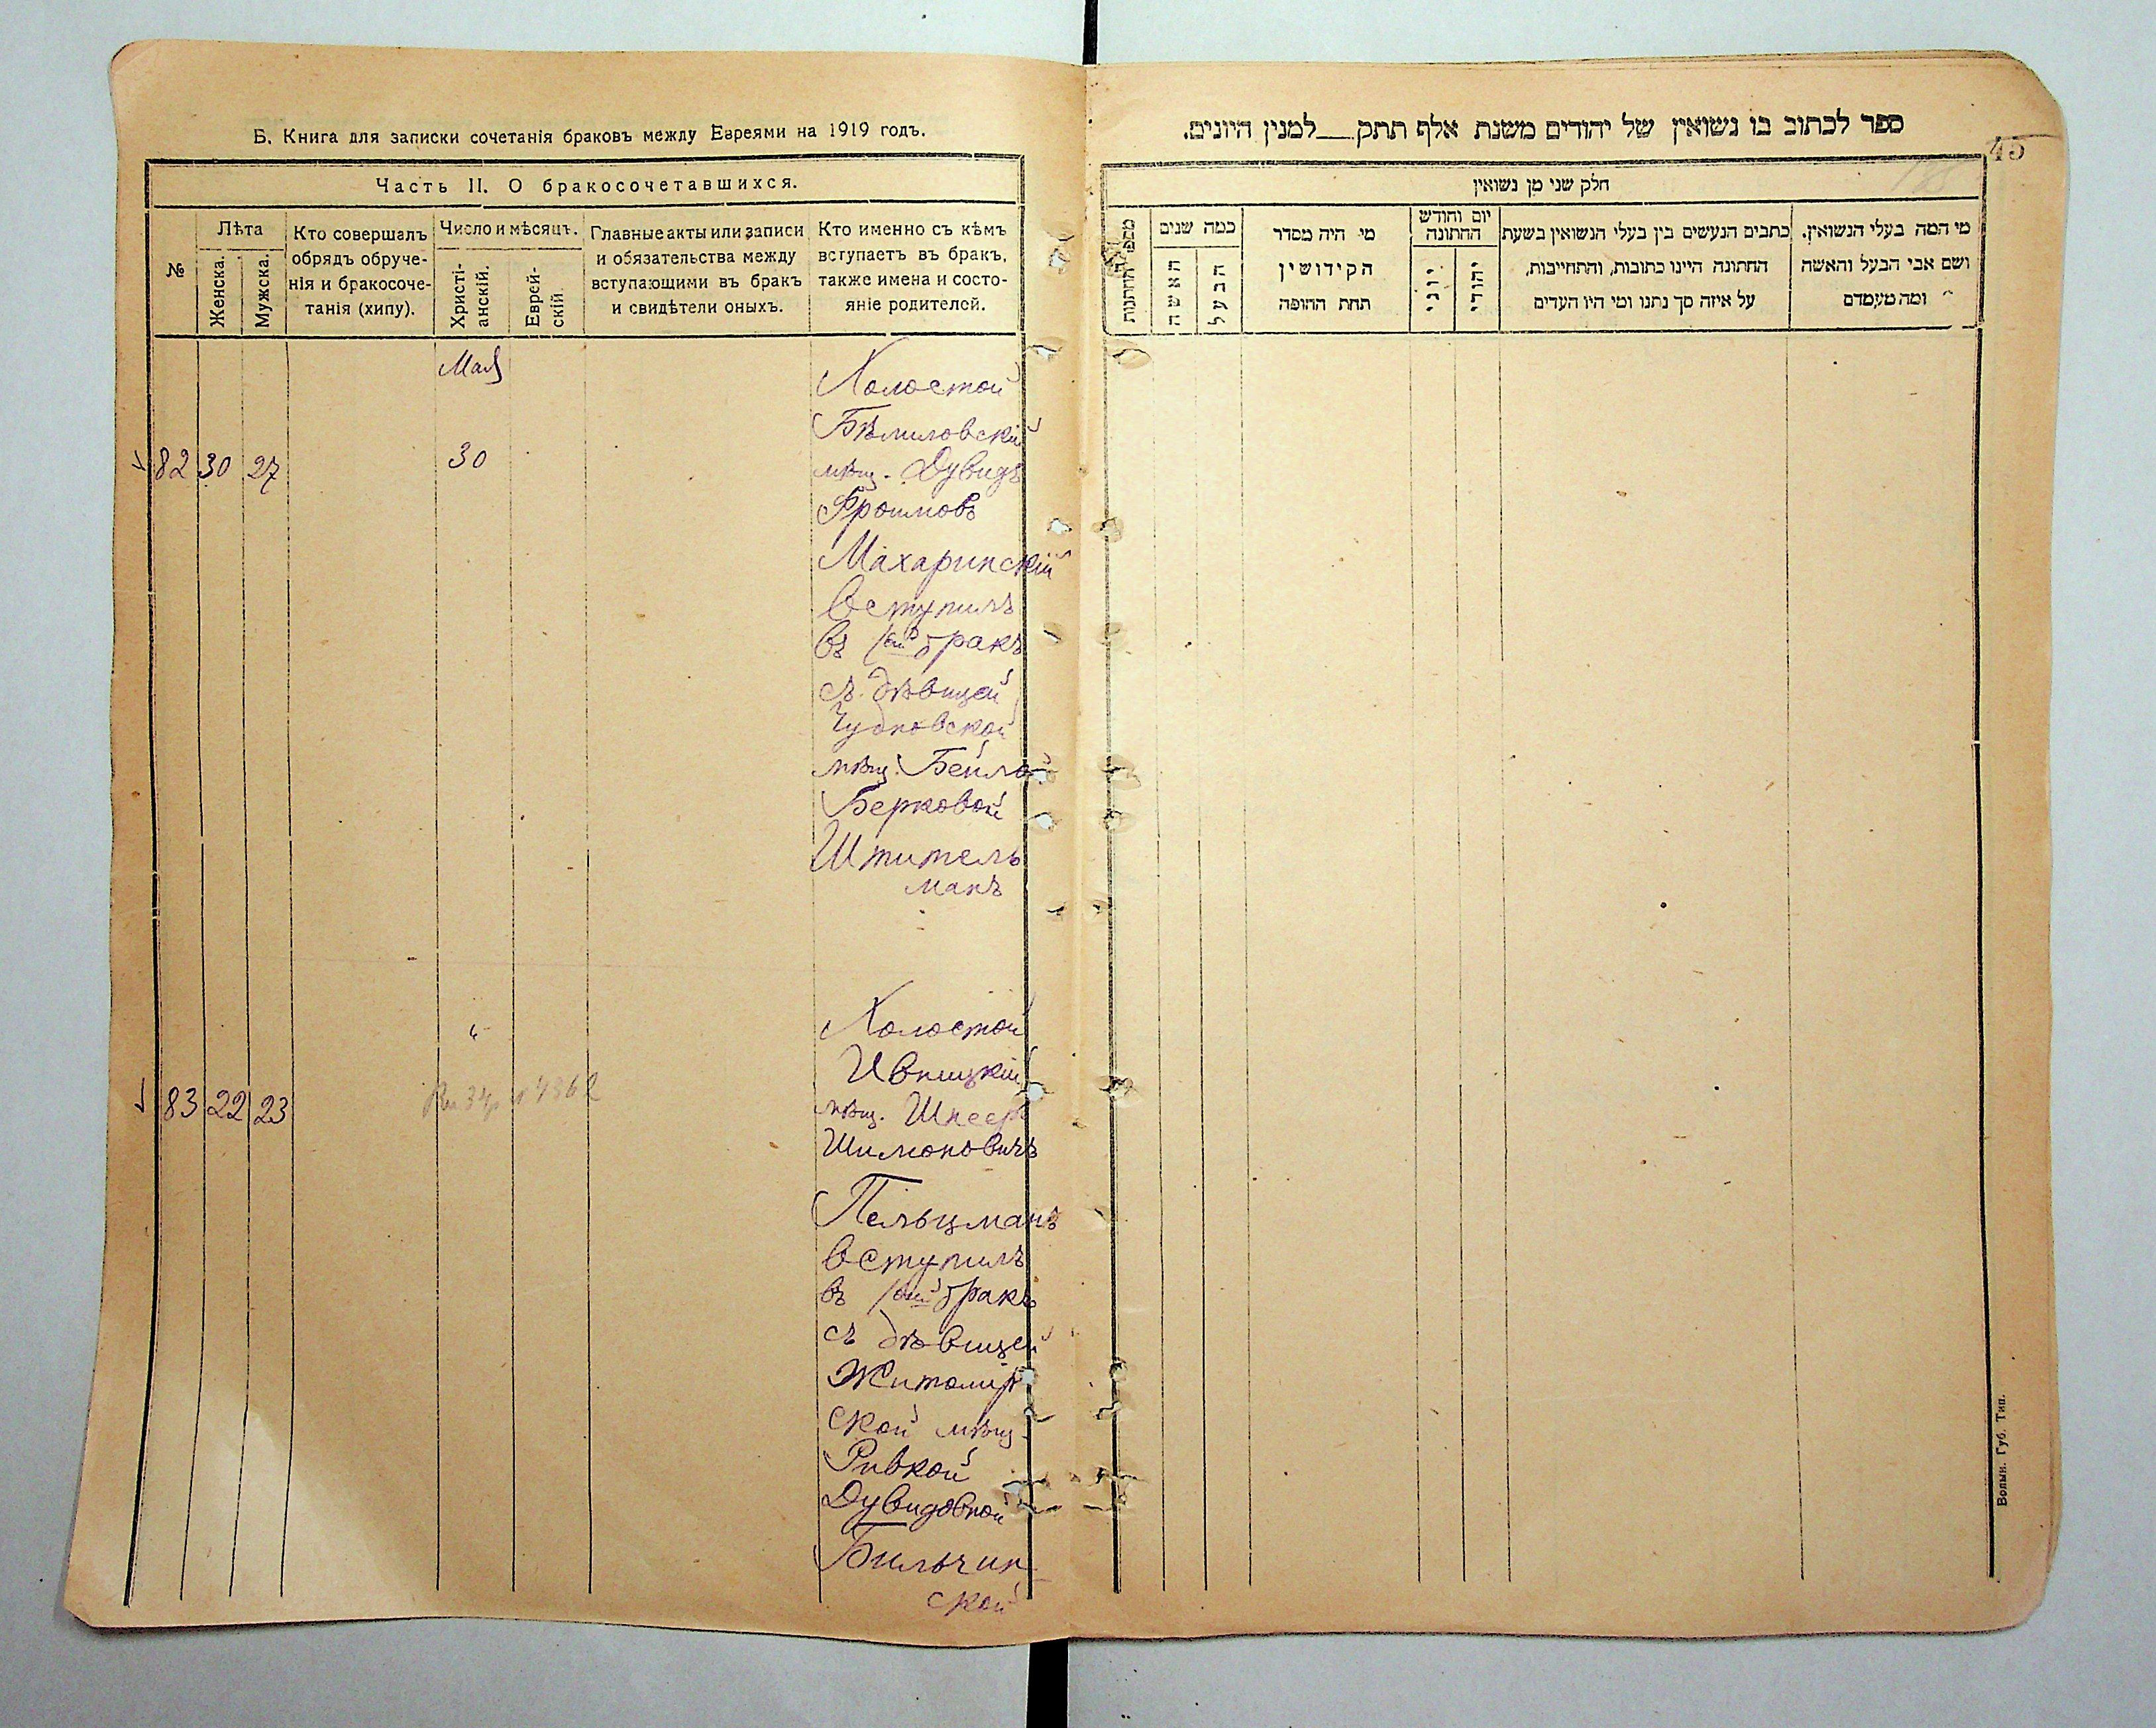 Б. Книга для записки сочетанія браковъ между Евреями на 1919 годъ.
Часть II. О бракосочетавшихся.
№
Лѣта
Женска.
Мужска.
Кто совершалъ
обрядъ обруче-
нія и бракосоче-
танія (хипу).
Число и мѣсяцъ.
Христі-
анскій.
Еврей-
скій.
Главные акты или записи
и обязательства между
вступающими въ бракъ
и свидѣтели оныхъ.
Кто именно съ кѣмъ
вступаетъ въ бракъ,
также имена и состо-
яніе родителей.
Май
82 30 27 30
Холостой
Бѣлиловскій
мѣщ. Дувидъ
Фроимовъ
Махаринскій
вступилъ
въ 1ый бракъ
съ дѣвицей
Чудновской
мѣщ. Бейлой
Берковой
Штитель
манъ
83 22 23 "
Холостой
Ивницкій
мѣщ. Шнеер
Шимоновичъ
Пельцманъ
вступилъ
въ 1ый бракъ
съ дѣвицей
Житомир
ской мѣщ.
Ривкой
Дувидовной
Бильчин
ской
ספר לכתוב בו נשואין של יהודים משנת אלף תתק__למנין היונים.
45
חלק שני מן נשואין
מי המה בעלי הנשואין.
ושם אבי הבעל והאשה
ומה מעמדם
כתבים הנעשים בין בעלי הנשואין בשעת
החתונה היינו כתובות, והתחייבות,
על איזה סך נתנו ומי היו העדים
יום וחודש
החתונה
יהודי
יוני
מי היה מסדר
הקידושין
תחת החופה
כמה שנים
הבעל
האשה
מספר החתונות
Волын. Губ. Тип.